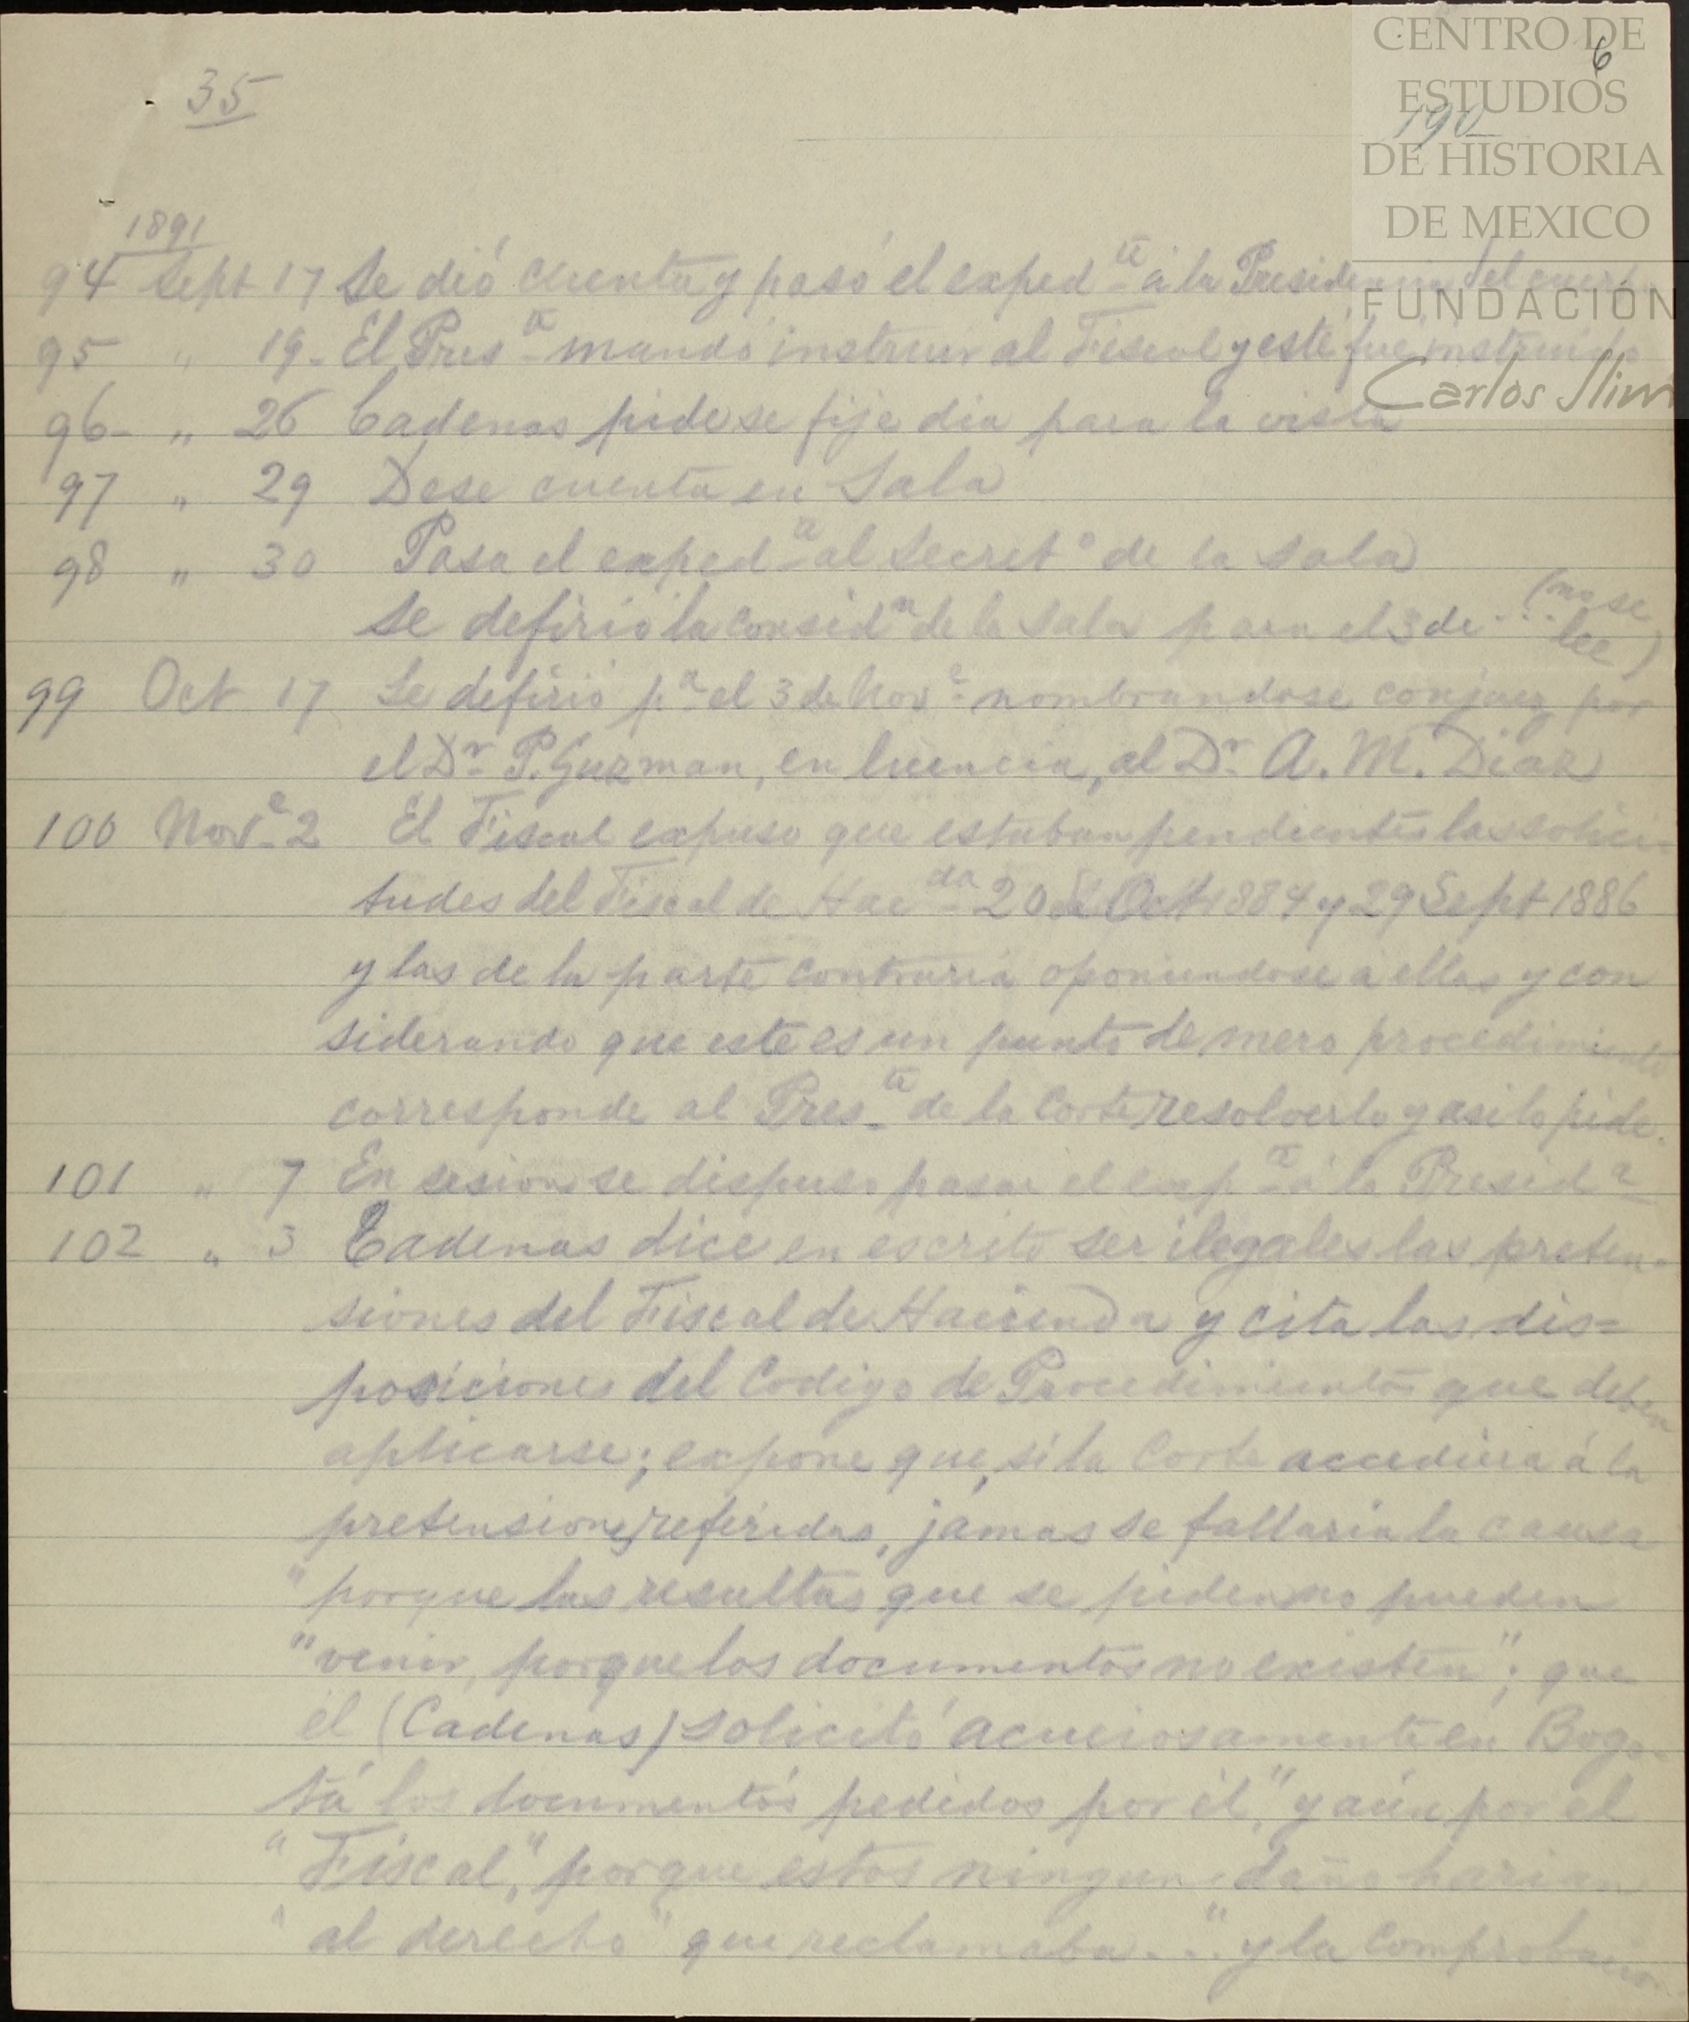 35
6
190
CENTRO DE
ESTUDIOS
DE HISTORIA
DE MEXICO
FUNDACIÓN
Carlos Slim
1891
94 Sept 17 Se dió cuenta y pasó el exped.te á la Presidencia del
95 " 19- El Pres.te mandó instruir al Fiscal y este fué instruido
96- " 26 Cadenas pide se fije dia para la vista
97 " 29 Dese cuenta en Sala
98 " 30 Pasa el exped.te al Secret.o de la Sala
Se defirió la consid.n de la Sala para el 3 de ... (no se
lee)
99 Oct 17 Se defirió p.a el 3 de Nov.e nombrandose conjuez por
el D.r P. Guzman, en licencia, al D.r A. M. Diaz
100 Nov.e 2 El Fiscal expuso que estaban pendientes las solici-
tudes del Fiscal de Hac.da 20 de Oct 1884 y 29 Sept 1886
y las de la parte contraria oponiendose a ellas y con
siderando que este es un punto de mero procedimiento
corresponde al Pres.te de la Corte resolverlo y asi lo pide.
101 " 7 En sesion se dispuso pasar el exp.te á la Presid.a
102 " 3 Cadenas dice en escrito ser ilegales las preten-
siones del Fiscal de Hacienda y cita las dis=
posiciones del Codigo de Procedimientos que deben
aplicarse; expone que, si la Corte accediera á la
pretensiones referidas, jamas se fallaria la causa
"porque las resultas que se piden no pueden
"venir, porque los documentos no existen"; que
el (Cadenas) solicitó acuciosamente en Bogo-
tá los documentos pedidos por él, "y aún por el
"Fiscal," porque estos ningun daño harian
"al derecho" que reclamaba..." y la comprobacion